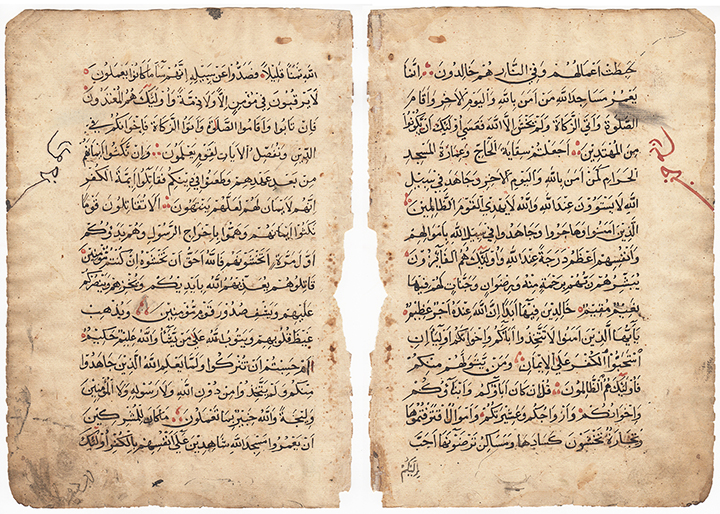 الله ثمنا قليلا فصدوا عن سبيله انهم ساء ما كانوا يعملون
لا يرقبون في مؤمن الا ولا ذمة واولئك هم المعتدون
فان تابوا واقاموا الصلوة واتوا الزكاة فاخوانكم في
الدين ونفصل الايات لقوم يعلمون وان نكثوا ايمانهم
من بعد عهدهم وطعنوا في دينكم فقاتلوا ايمة الكفر
انهم لا يمان لهم لعلهم ينتهون الا تقاتلون قوما
نكثوا ايمانهم وهموا باخراج الرسول وهم بدؤكم
اول مرة اتخشونهم فالله احق ان تخشوه ان كنتم مؤمنين
قاتلوهم يعذبهم الله بايديكم ويخزهم وينصركم
عليهم ويشف صدور قوم مؤمنين ويذهب
غيظ قلوبهم ويتوب الله على من يشا والله عليم حكيم
ام حسبتم ان تتركوا ولما يعلم الله الذين جاهدوا
منكم ولم يتخذوا من دون الله ولا رسوله ولا المؤمنين
وليجة والله خبير بما تعملون ما كان للمشركين
ان يعمروا مسجد الله شاهدين على انفسهم بالكفر اولئك
حبطت اعمالهم وفي النار هم خالدون انما
يعمر مساجد الله من امن بالله واليوم الاخر واقام
الصلوة واتى الزكاة ولم يخش الا الله فعسى اولئك ان يكونوا
من المهتدين اجعلتم سقاية الحاج وعمارة المسجد
الحرام كمن امن بالله واليوم الاخر وجاهد في سبيل
الله لا يستوون عند الله والله لا يهدي القوم الظالمين
الذين امنوا وهاجروا وجاهدوا في سبيل الله باموالهم
وانفسهم اعظم درجة عند الله واولئك هم الفائزون
يبشرهم ربهم برحمة منه ورضوان وجنات لهم فيها
نعيم مقيم خالدين فيها ابدا ان الله عنده اجر عظيم
يا ايها الذين امنوا لا تتخذوا اباكم واخوانكم اوليا ان
استحبوا الكفر على الايمان ومن يتولهم منكم
فاولئك هم الظالمون قل ان كان اباؤكم وابناؤكم
واخوانكم وازواجكم وعشيرتكم واموال اقترفتموها
وتجارة تخشون كسادها ومساكن ترضونها احب
اليكم